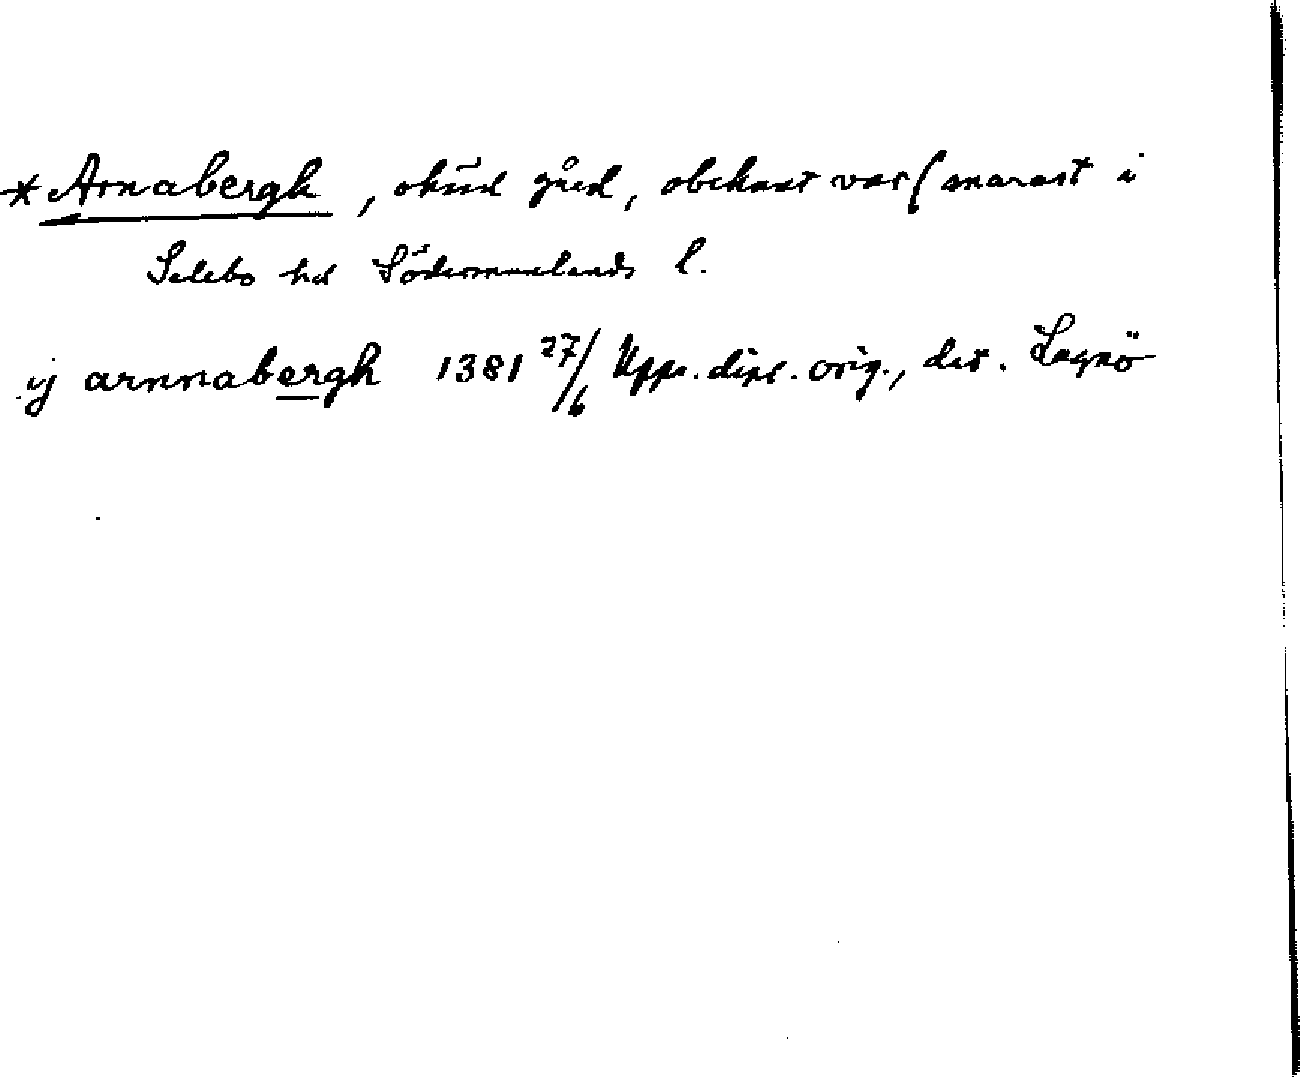 * Arnabergh, okänd gård, obekant var (snarast i
Selebo hd Södermanlands l.
ij arnnabergh 1381 27/6 Upps. dipl. orig., dat. Lagnö